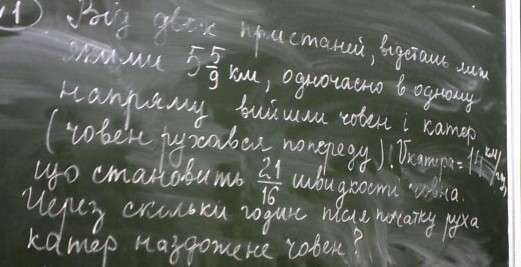 1 Від двох пристаней, відстань між
якими 5 5/9 км, одночасно в одному
напряму вийшли човен і катер
(човен рухався попереду). Vкатера = 14 км/год,
що становить 21/16 швидкості човна.
Через скільки годин після початку руха
катер наздожене човен?